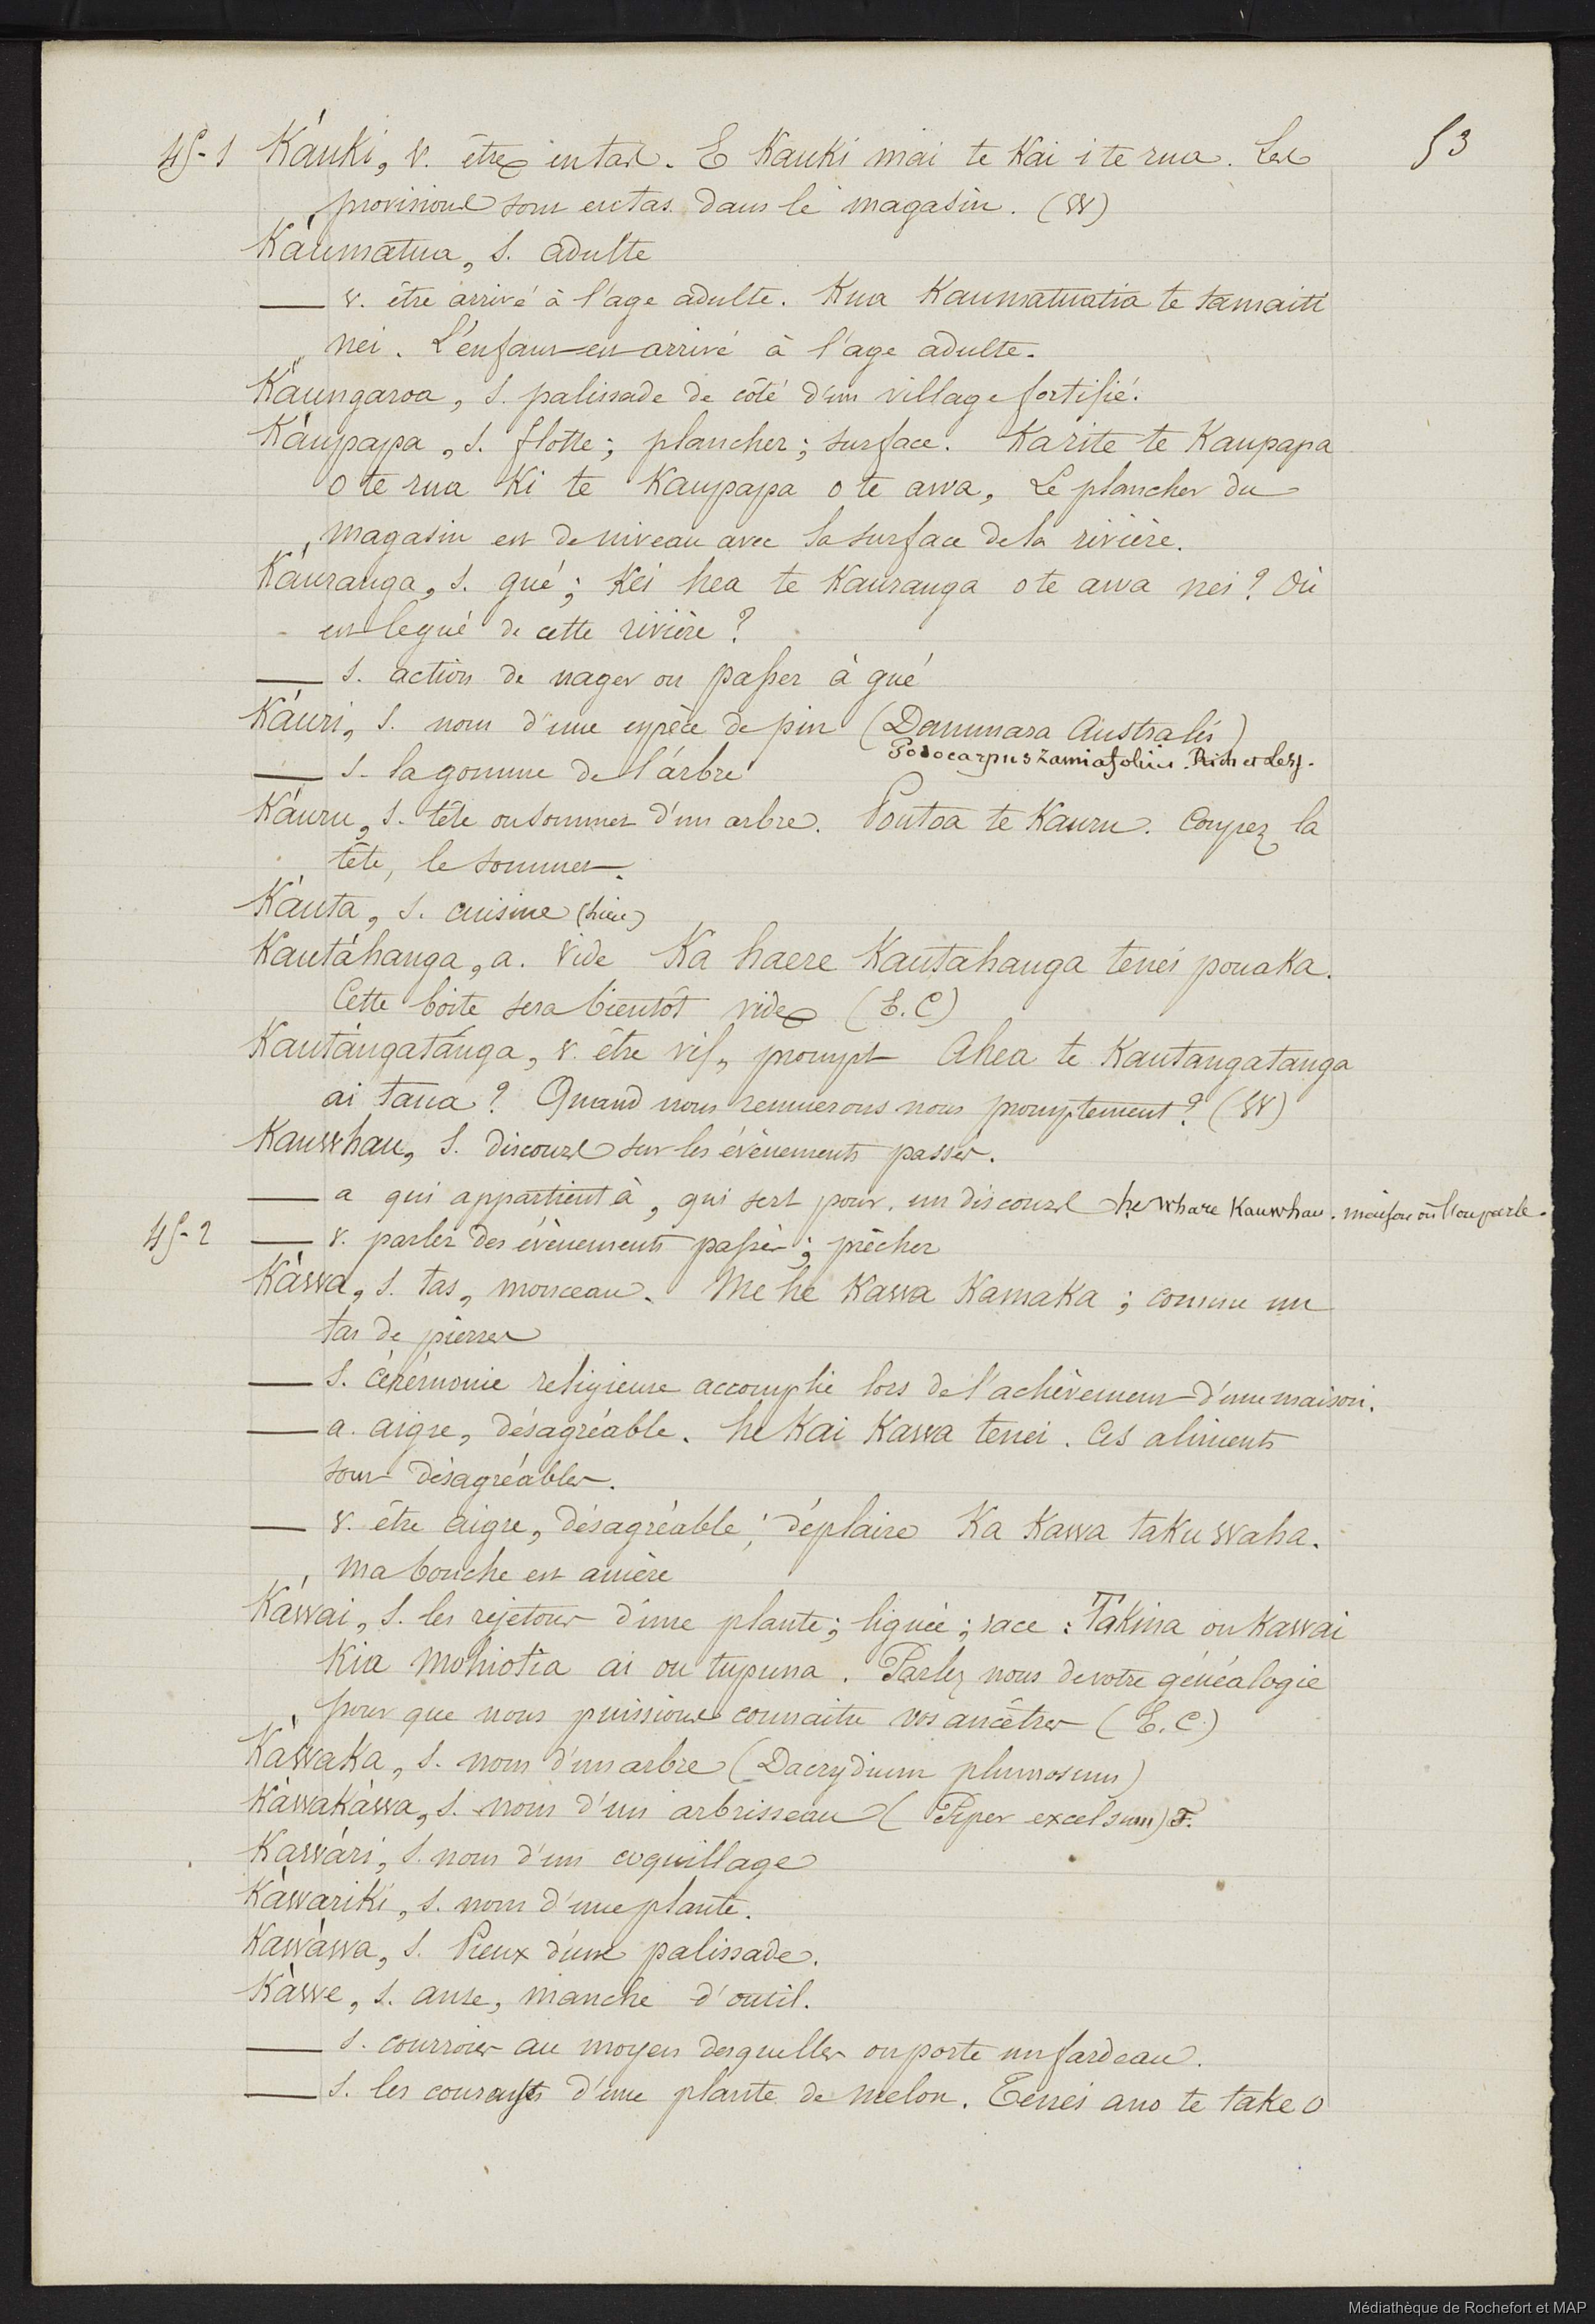 53
45-1 Káuki, v. être en tas. E Kauki mai te Kai i te rua. Les
provisions sont en tas dans le magasin. (W)
Káumatua, s. adulte
— v. être arrivé à l'age adulte. Kua Kaumatuatia te tamaiti
nei. L'enfant est arrivé à l'age adulte.
Káungaroa, s. palissade de côté d'un village fortifié.
Káupapa, s. flotte; plancher; surface. Karite te Kaupapa
o te rua Ki te Kaupapa o te awa, Le plancher du
magasin est de niveau avec la surface de la rivière.
Káuranga, s. gué; Kei hea te Kauranga o te awa nei? Où
est le gué de cette rivière?
— s. action de nager ou passer à gué
Káuri, s. nom d'une espèce de pin (Dammara Australis)
Podocarpus zamiafolius. Rich et Less.
— s. la gomme de l'arbre
Káuru, s. tête ou sommet d'un arbre. Poutoa te Kauru. Coupez la
tête, le sommet.
Káuta, s. cuisine (lieu)
Kautáhanga, a. vide Ka haere Kautahanga tenei pouaka.
Cette boite sera bientôt vide (E.C)
Kautángatánga, v. être vif, prompt Ahea te Kautangatanga
ai taua? Quand nous remuerons nous promptement? (W)
Kauwhau, s. discours sur les évènements passés.
— a qui appartient à, qui sert pour un discours he whare Kauwhau. maison où l'on parle.
45-2 — v. parler des évènements passés; prêcher
Káwa, s. tas, monceau. Me he Kawa Kamaka; comme un
tas de pierres
— s. cérémonie religieuse accomplie lors de l'achèvement d'une maison.
— a. aigre, désagréable. he Kai Kawa tenei. Ces aliments
sont désagréables.
— v. être aigre, désagréable; déplaire Ka Kawa taku waha.
ma bouche est amère
Káwai, s. les rejetons d'une plante; lignée; race: Takina ou kawai
Kia mohiotia ai ou tupuna. Parlez nous de votre généalogie
pour que nous puissions connaitre vos ancêtres (E.C.)
Káwaka, s. nom d'un arbre (Dacrydium plumosum)
Káwakáwa, s. nom d'un arbrisseau (Piper excelsum) F.
Kawári, s. nom d'un coquillage
Káwariki, s. nom d'une plante.
Kawáwa, s. Pieux d'une palissade.
Káwe, s. anse, manche d'outil.
— s. courroies au moyen desquelles on porte un fardeau.
— s. les courants d'une plante de melon. Tenei ano te take o
Médiathèque de Rochefort et MAP